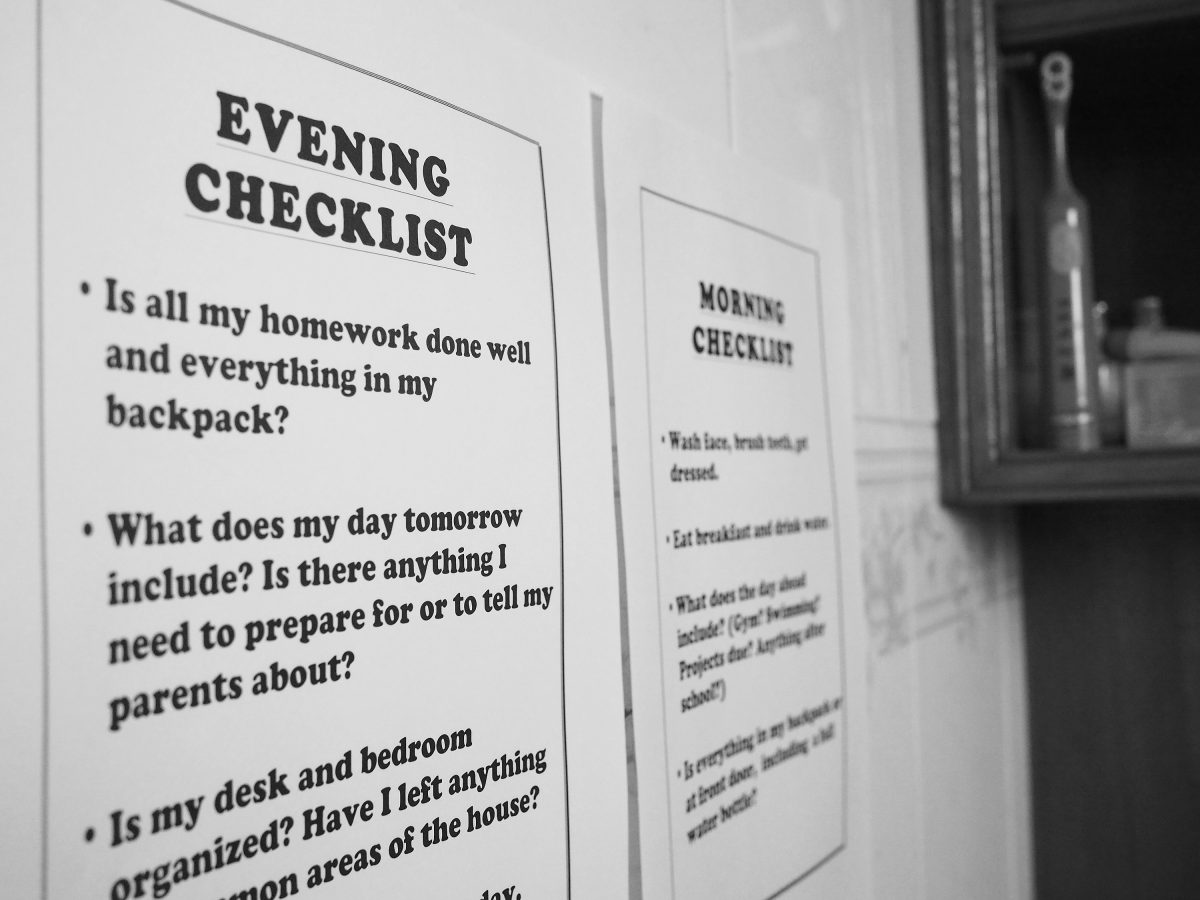 EVENING
CHECKLIST
• Is all my homework done well
and everything in my
backpack?
• What does my day tomorrow
include? Is there anything I
need to prepare for or to tell my
parents about?
• Is my desk and bedroom
organized? Have I left anything
areas of the house?
MORNING
CHECKLIST
• Wash face, brush teeth, get
dressed.
• Eat breakfast and drink water.
• What does the day ahead
include? (Gym? Swimming?
Projects due? Anything after
school?)
• Is everything in my backpack or
at front door, including a full
water bottle?